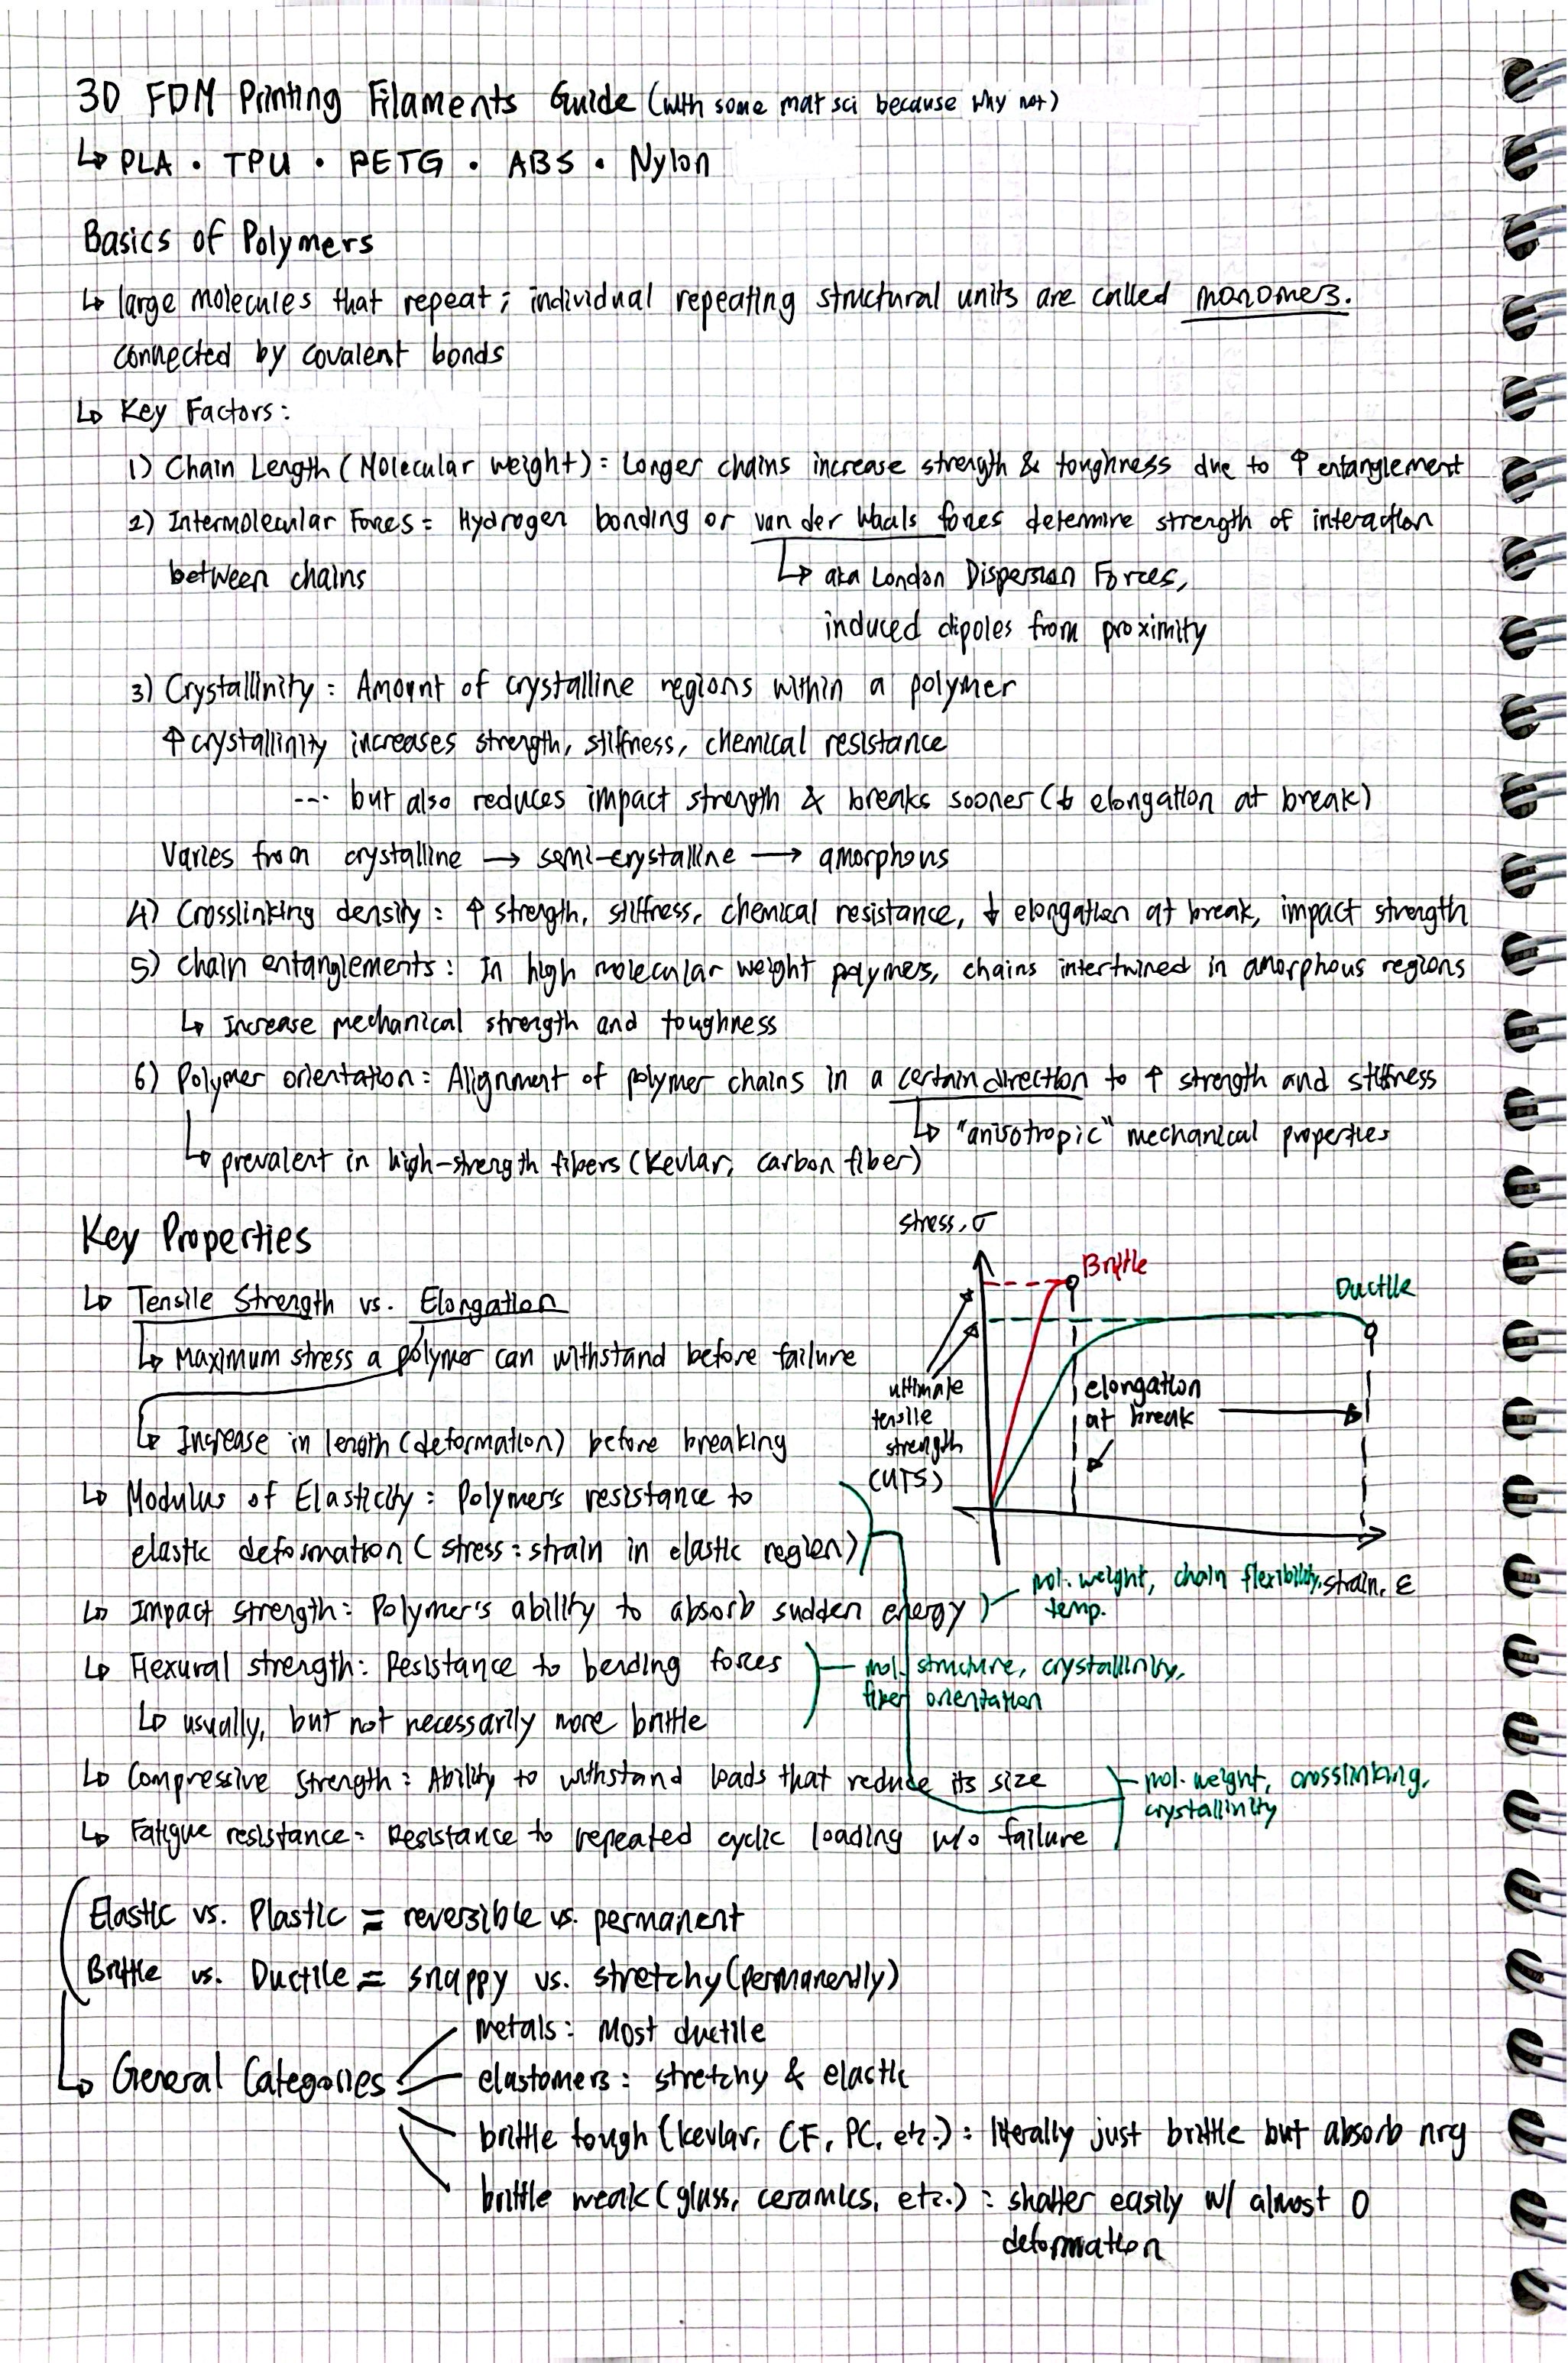 3D FDM Printing Filaments Guide (with some mat sci because why not)
↳ PLA • TPU • PETG • ABS • Nylon
Basics of Polymers
↳ large molecules that repeat; individual repeating structural units are called monomers.
connected by covalent bonds
↳ Key Factors:
1) Chain Length (Molecular weight): Longer chains increase strength & toughness due to ↑ entanglement
2) Intermolecular Forces: Hydrogen bonding or van der Waals forces determine strength of interaction
between chains
↳ aka London Dispersion Forces,
induced dipoles from proximity
3) Crystallinity: Amount of crystalline regions within a polymer
↑ crystallinity increases strength, stiffness, chemical resistance
... but also reduces impact strength & breaks sooner (↓ elongation at break)
Varies from crystalline → semi-crystalline → amorphous
4) Crosslinking density: ↑ strength, stiffness, chemical resistance, ↓ elongation at break, impact strength
5) Chain entanglements: In high molecular weight polymers, chains intertwined in amorphous regions
↳ Increase mechanical strength and toughness
6) Polymer orientation: Alignment of polymer chains in a certain direction to ↑ strength and stiffness
↳ "anisotropic" mechanical properties
↳ prevalent in high-strength fibers (Kevlar, carbon fiber)
Key Properties
↳ Tensile Strength vs. Elongation
↳ Maximum stress a polymer can withstand before failure
↳ Increase in length (deformation) before breaking
stress, σ
Brittle
Ductile
ultimate
tensile
strength
(UTS)
elongation
at break
strain, ε
↳ Modulus of Elasticity: Polymer's resistance to
elastic deformation (stress:strain in elastic region)
↳ Impact strength: Polymer's ability to absorb sudden energy
mol. weight, chain flexibility,
temp.
↳ Flexural strength: Resistance to bending forces
↳ usually, but not necessarily more brittle
mol. structure, crystallinity,
fiber orientation
↳ Compressive Strength: Ability to withstand loads that reduce its size
↳ Fatigue resistance: Resistance to repeated cyclic loading w/o failure
mol. weight, crosslinking,
crystallinity
Elastic vs. Plastic = reversible vs. permanent
Brittle vs. Ductile = snappy vs. stretchy (permanently)
↳ General Categories
metals: Most ductile
elastomers: stretchy & elastic
brittle tough (kevlar, CF, PC, etc.): literally just brittle but absorb nrg
brittle weak (glass, ceramics, etc.): shatter easily w/ almost 0
deformation